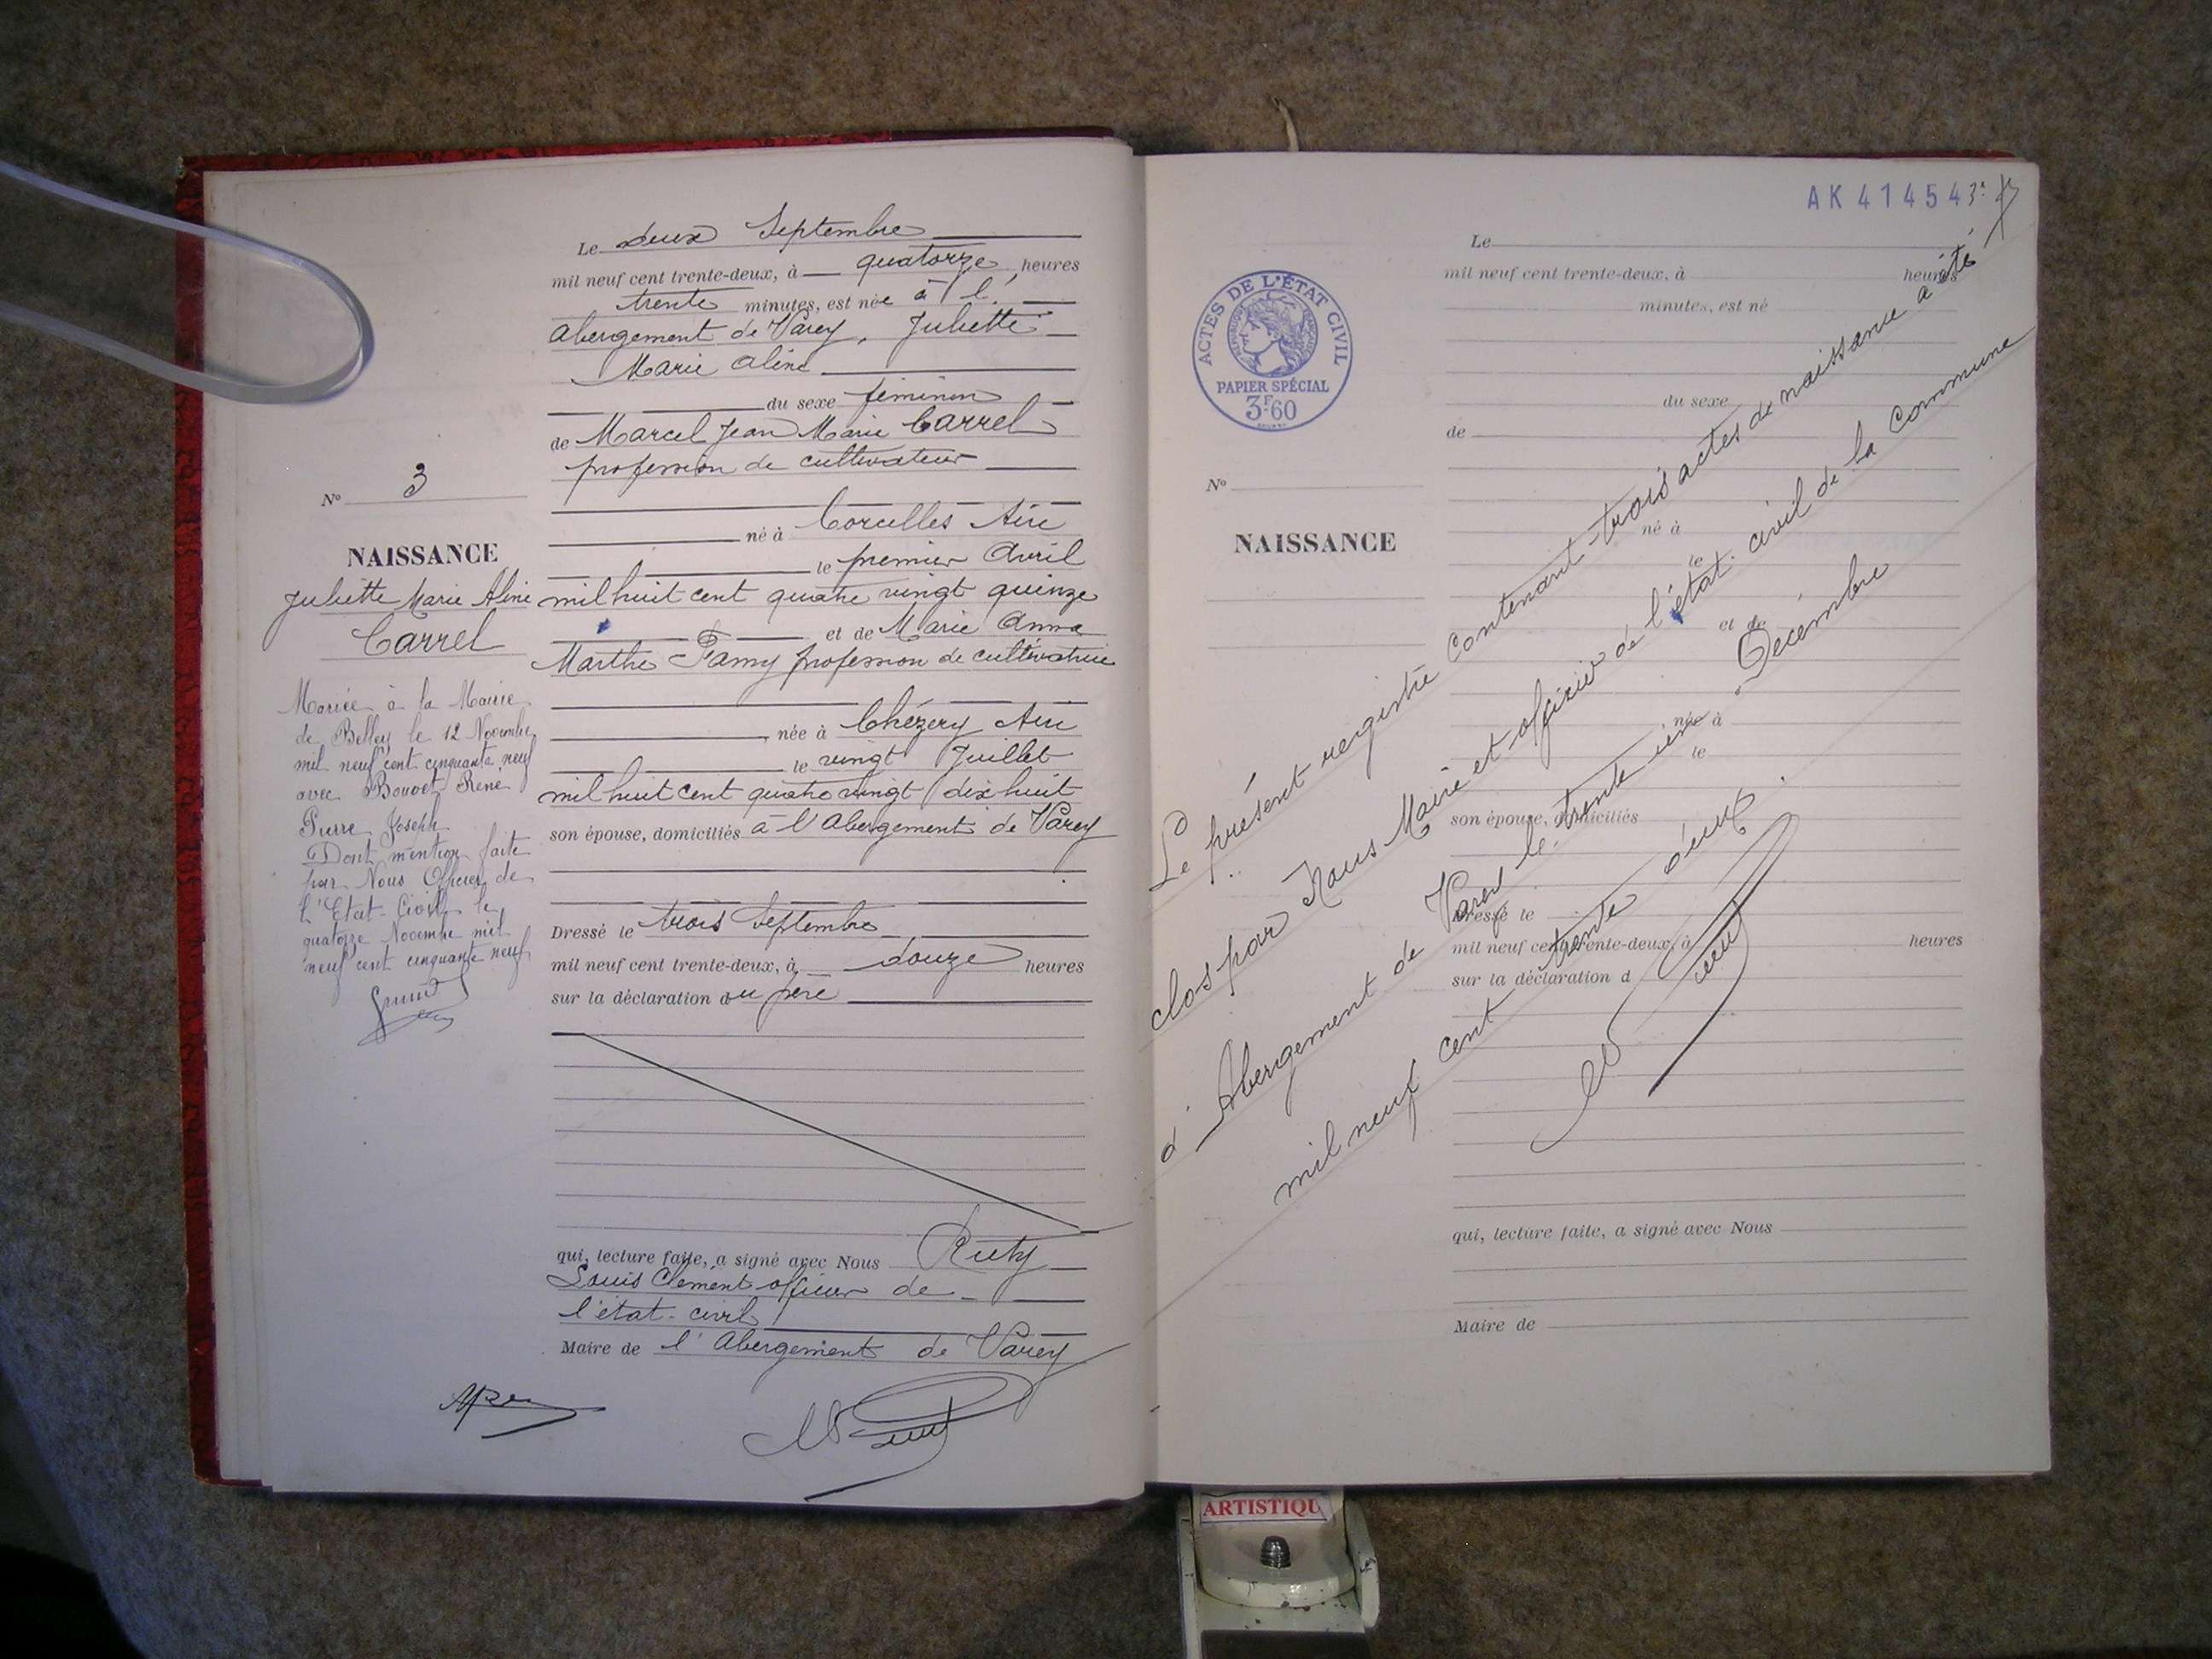 Le deux Septembre
mil neuf cent trente-deux, à quatorze heures
trente minutes, est née à l'
Abergement de Varey, Juliette
Marie Aline
du sexe féminin
de Marcel Jean Marie Carrel
profession de cultivateur
né à Corcelles Ain
le premier Avril
mil huit cent quatre vingt quinze
et de Marie Anna
Marthe Famy profession de cultivatrice
née à Chézery Ain
le vingt Juillet
mil huit cent quatre vingt dix huit
son épouse, domiciliés à l'Abergement de Varey
Dressé le trois Septembre
mil neuf cent trente-deux, à douze heures
sur la déclaration du père
qui, lecture faite, a signé avec Nous Ruty
Louis Clément officier de
l'état-civil
Maire de l'Abergement de Varey
N° 3
NAISSANCE
Juliette Marie Aline
Carrel
Mariée à la Mairie
de Belley le 12 Novembre
mil neuf cent cinquante neuf
avec Bouvet René
Pierre Joseph
Dont mention faite
par Nous Officier de
l'Etat-Civil le
quatorze Novembre mil
neuf cent cinquante neuf
AK 41454
3e
ACTES DE L'ÉTAT CIVIL
RÉPUBLIQUE FRANÇAISE
PAPIER SPÉCIAL
3F60
N°
NAISSANCE
Le
mil neuf cent trente-deux, à heures
minutes, est né
du sexe
de
né à
le
et de
née à
le
son épouse, domiciliés
Dressé le
mil neuf cent trente-deux, à heures
sur la déclaration d
qui, lecture faite, a signé avec Nous
Maire de
Le présent registre contenant trois actes de naissance a été
clos par Nous Maire et officier de l'état-civil de la Commune
d'Abergement de Varey le trente un Décembre
mil neuf cent trente deux.
ARTISTIQU